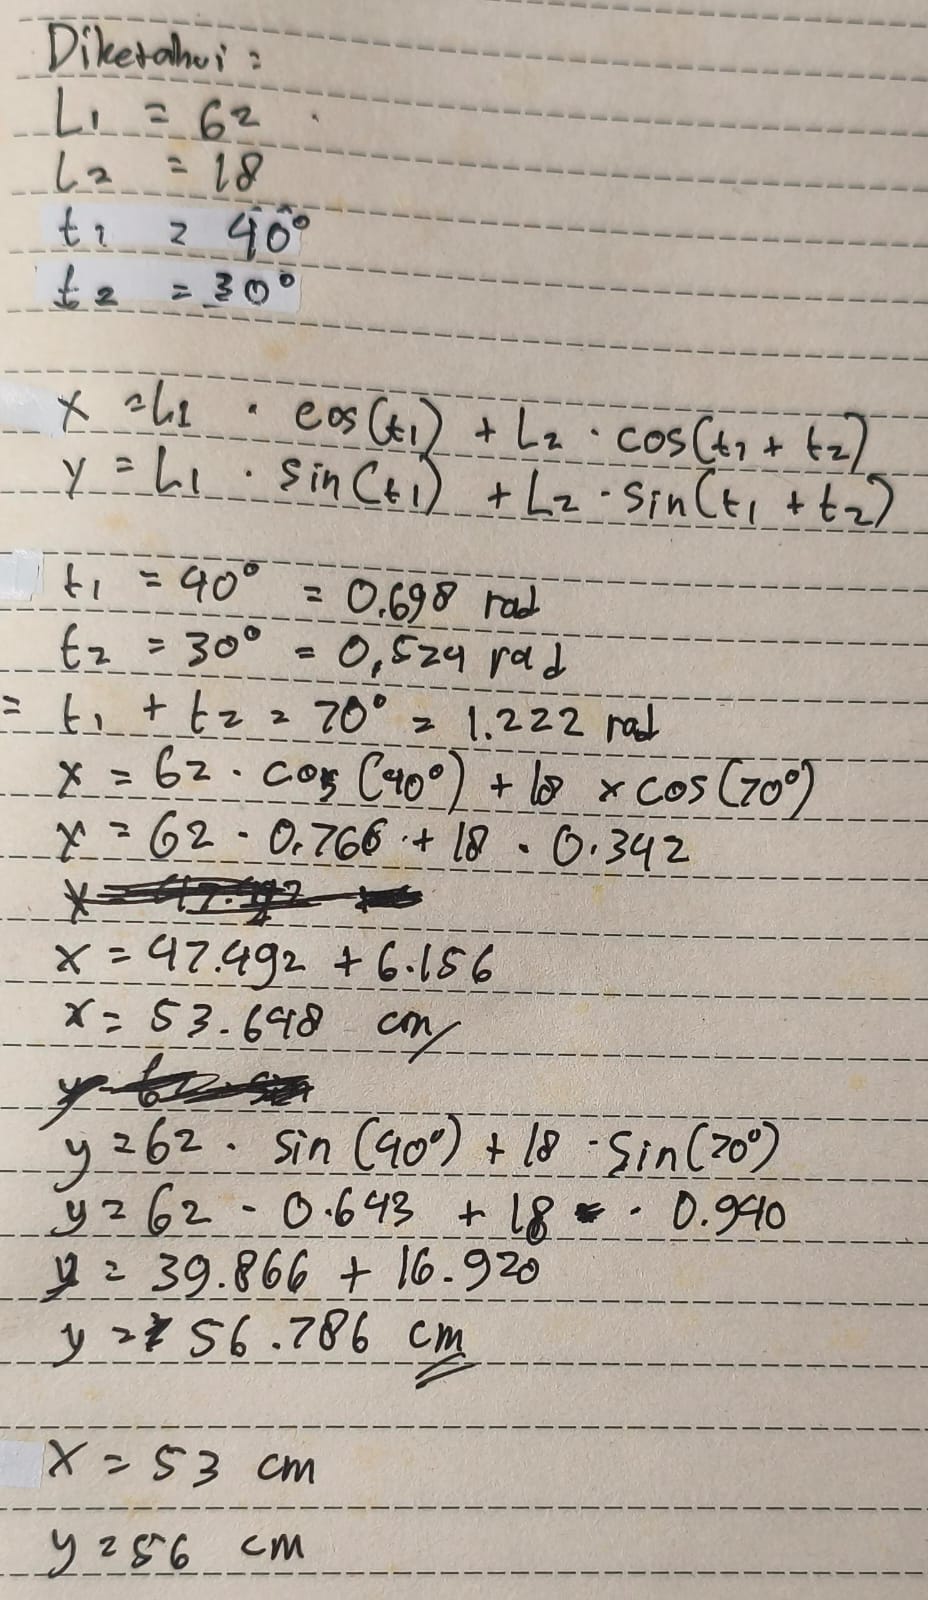 Diketahui :
L1 = 62
L2 = 18
t1 = 40°
t2 = 30°
x = L1 . cos(t1) + L2 . cos(t1 + t2)
y = L1 . sin(t1) + L2 . sin(t1 + t2)
t1 = 40° = 0.698 rad
t2 = 30° = 0,524 rad
= t1 + t2 = 70° = 1.222 rad
x = 62 . cos (40°) + 18 x cos (70°)
x = 62 . 0.766 + 18 . 0.342
x = 47.492 + 6.156
x = 53.648 cm
y = 62 . sin (40°) + 18 . sin(70°)
y = 62 . 0.643 + 18 . 0.940
y = 39.866 + 16.920
y = 56.786 cm
x = 53 cm
y = 56 cm